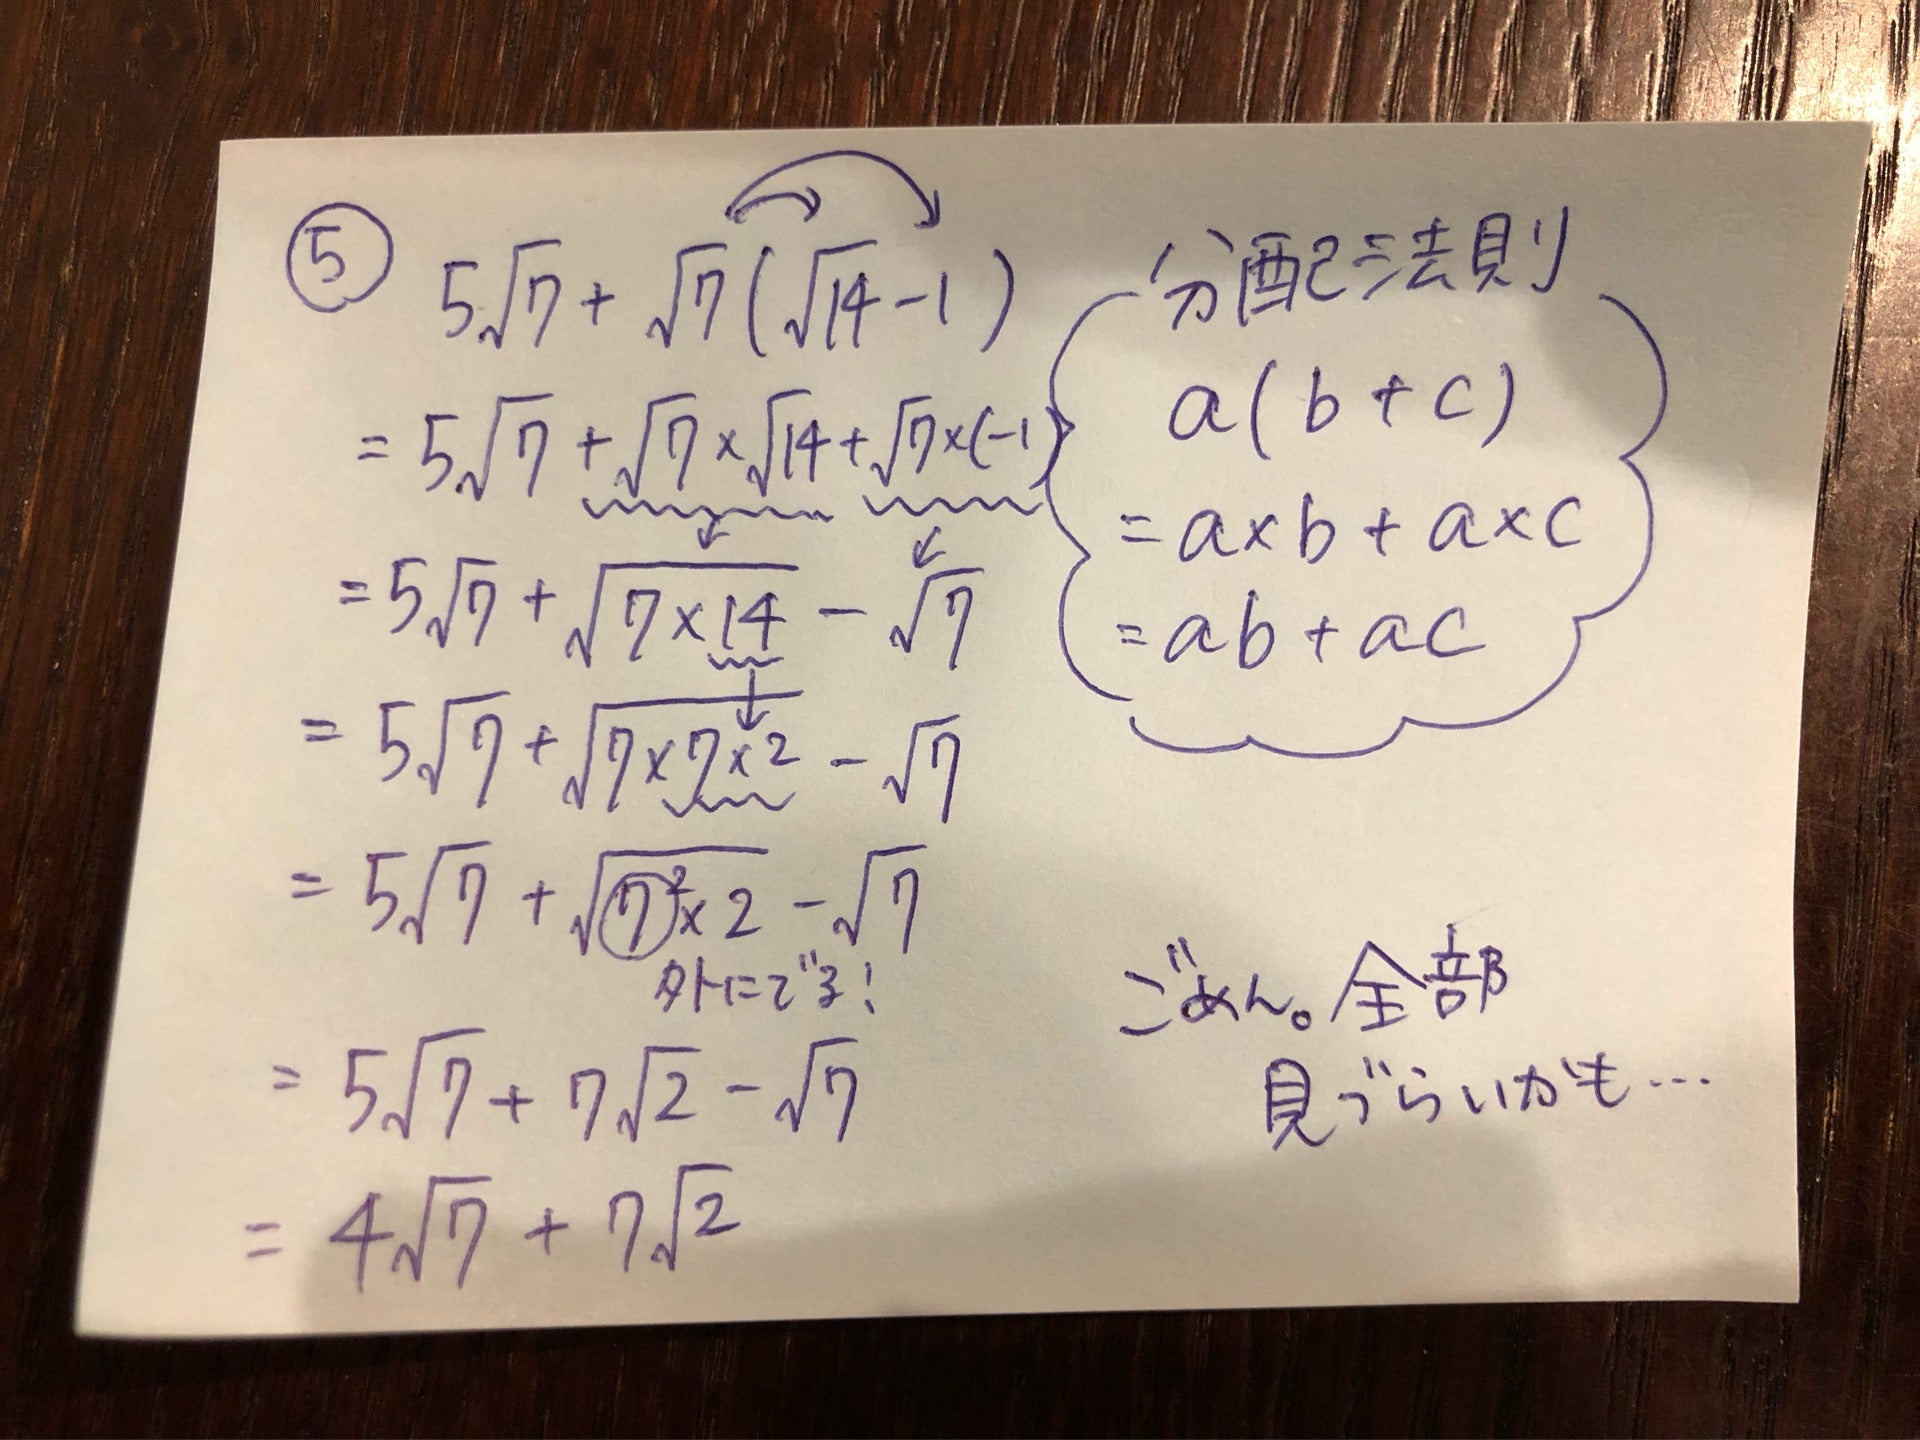 ⑤ 5√7 + √7(√14 - 1)
= 5√7 + √7 × √14 + √7 × (-1)
= 5√7 + √(7×14) - √7
= 5√7 + √(7×7×2) - √7
= 5√7 + √(7²×2) - √7
外にでる!
= 5√7 + 7√2 - √7
= 4√7 + 7√2
分配法則
a(b+c)
= a×b + a×c
= ab + ac
ごめん。全部
見づらいかも…